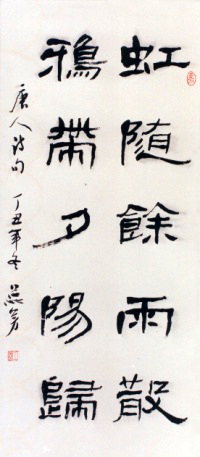 虹随餘雨散
鴉帶夕陽歸
唐人詩句
丁丑年冬